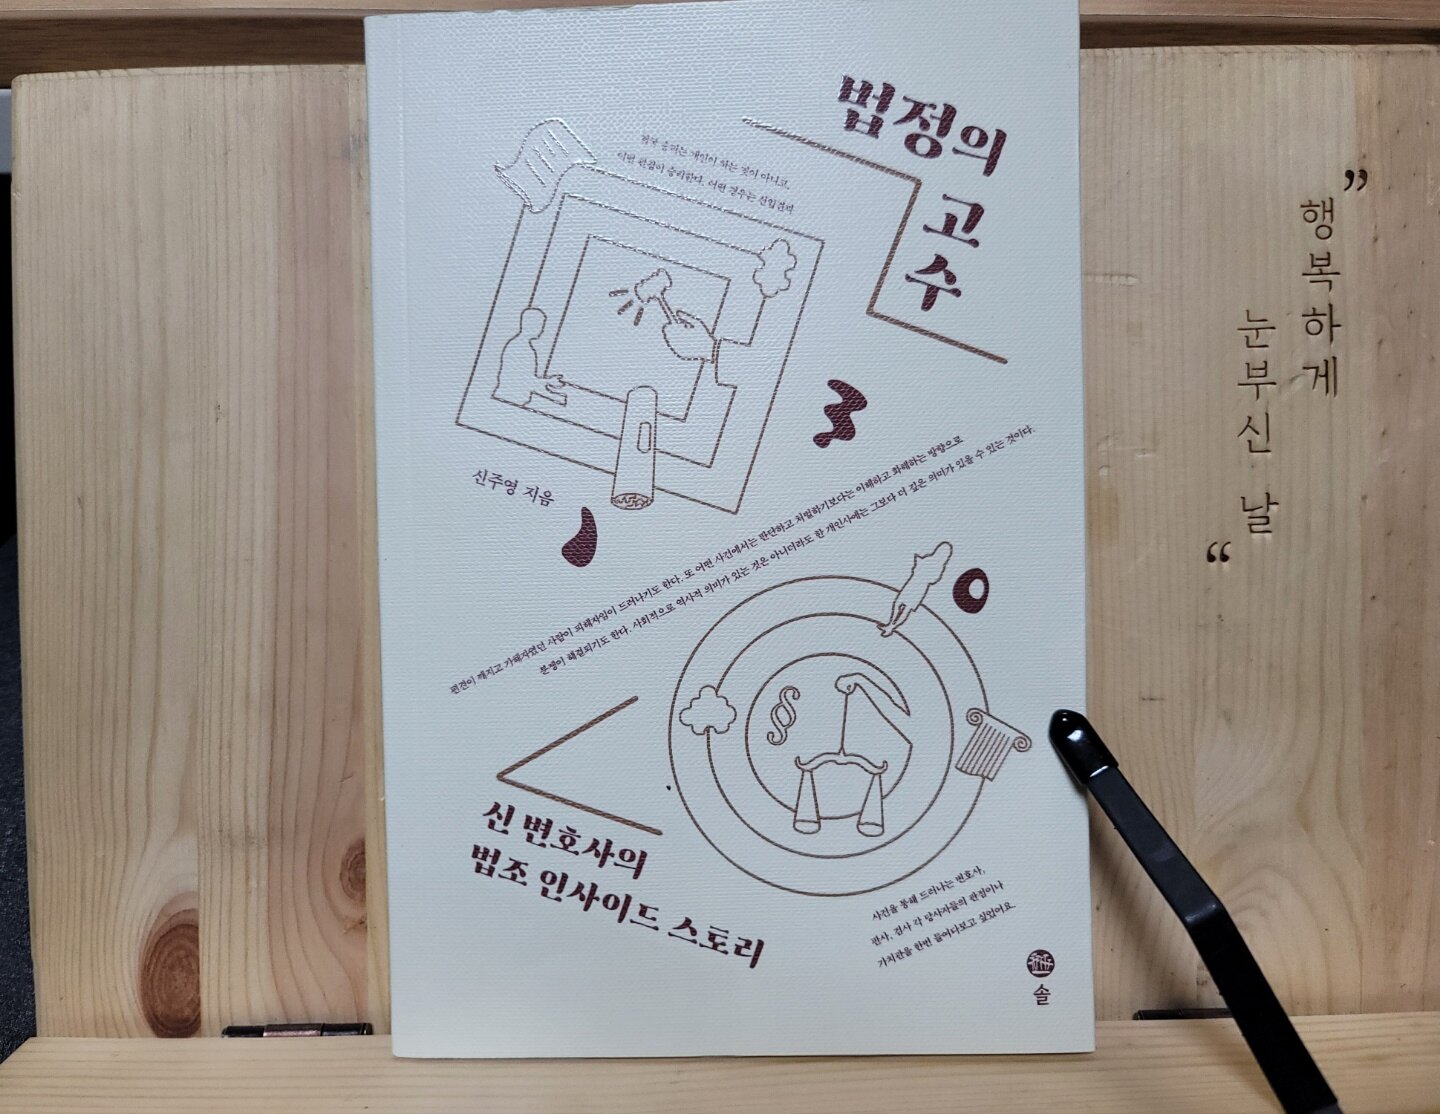 법정의
고
수
결국 승리는 개인이 하는 것이 아니고,
어떤 관점이 승리한다. 어떤 경우는 선입견과
신주영 지음
편견이 깨지고 가해자였던 사람이 피해자임이 드러나기도 한다. 또 어떤 사건에서는 판단하고 처벌하기보다는 이해하고 화해하는 방향으로
분쟁이 해결되기도 한다. 사회적으로 역사적 의미가 있는 것은 아니더라도 한 개인사에는 그보다 더 깊은 의미가 있을 수 있는 것이다.
§
신 변호사의
법조 인사이드 스토리
사건을 통해 드러나는 변호사,
판사, 검사 각 당사자들의 관점이나
가치관을 한번 들여다보고 싶었어요.
솔
”
행복하게
눈부신 날
“